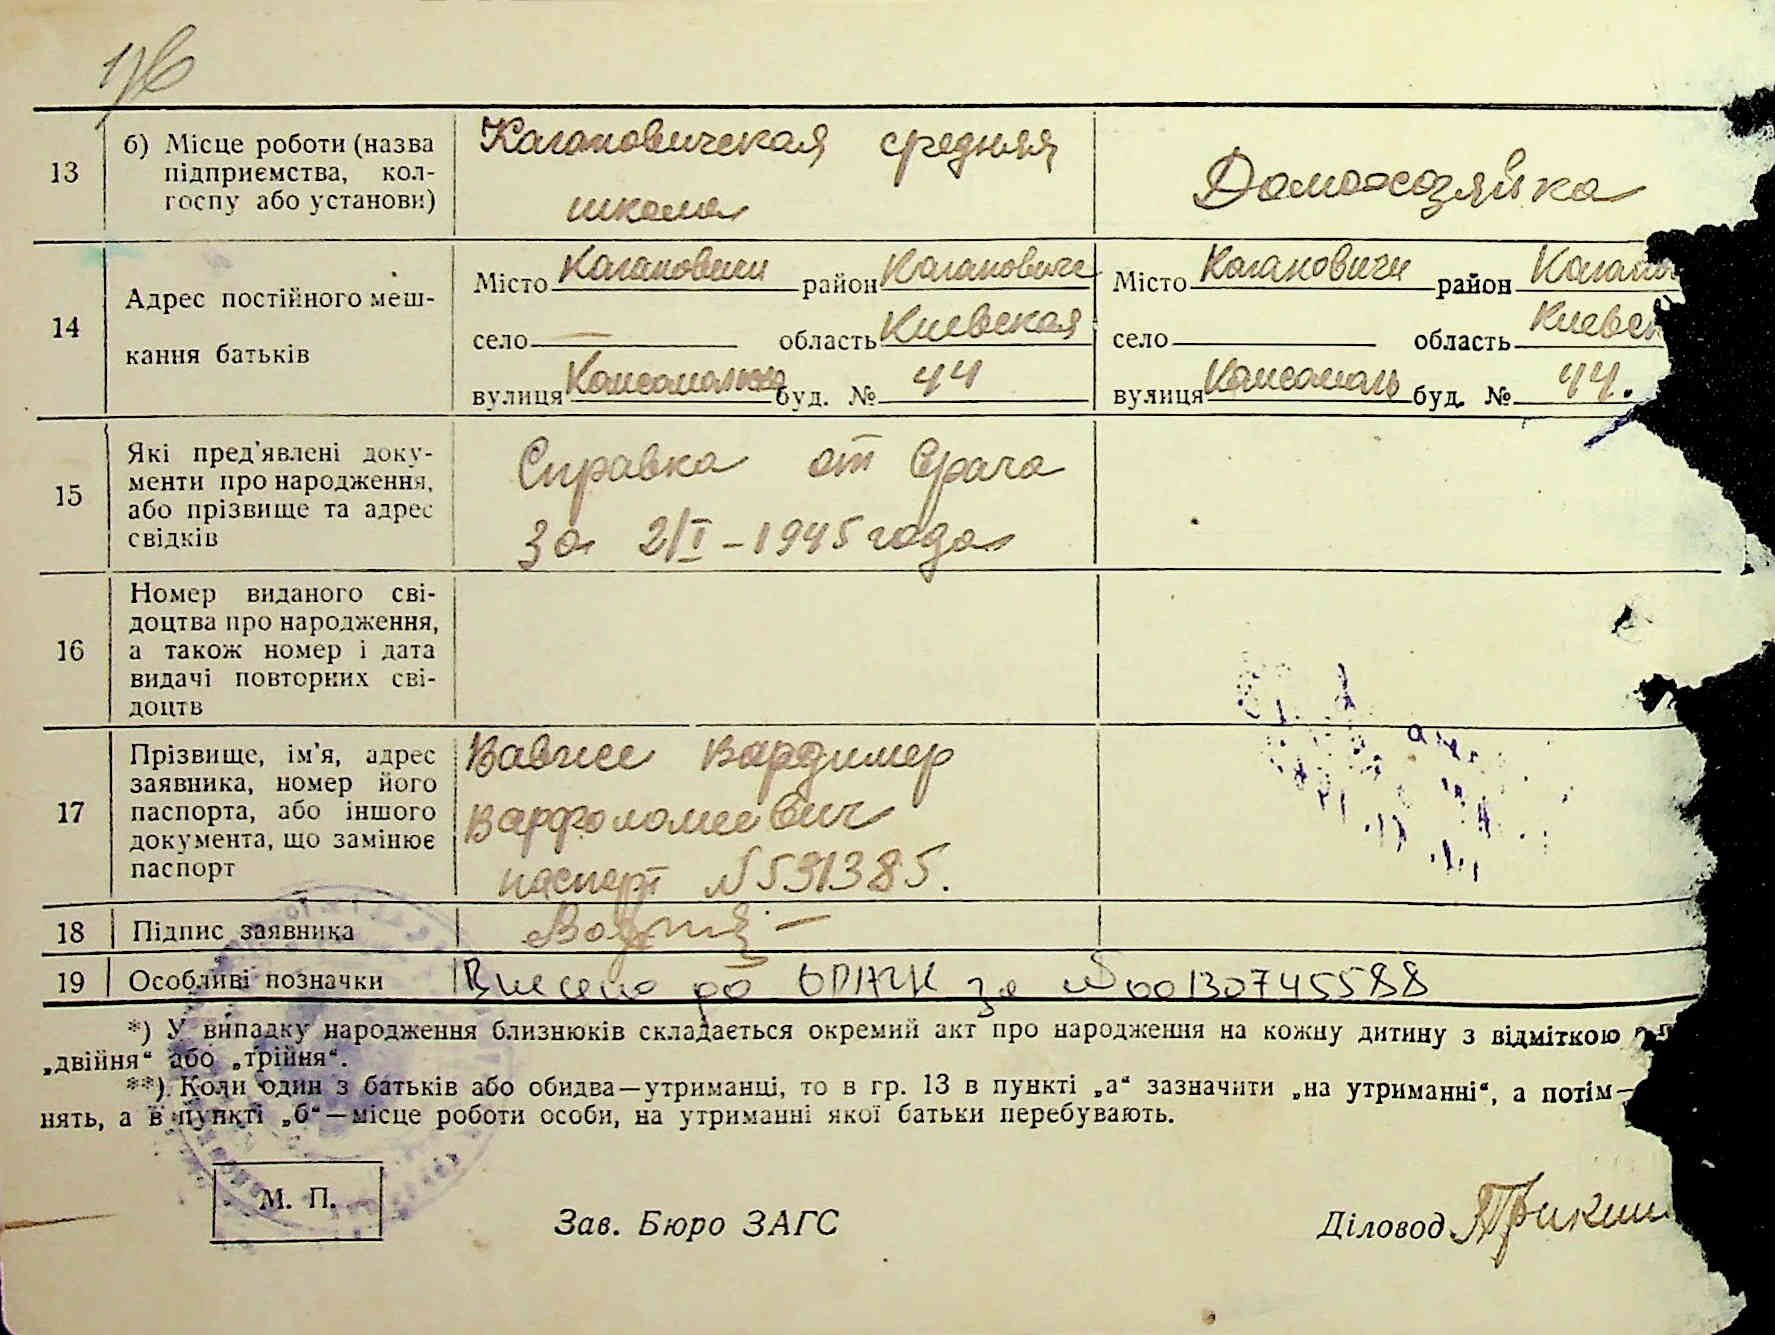 13
б) Місце роботи (назва
підприємства, кол-
госпу або установи)
Кагановичская средняя
школа
Домохозяйка
14
Адрес постійного меш-
кання батьків
Місто Кагановичи район Кагановиче
село область Киевская
вулиця буд. № 44
Місто Кагановичи район
село область
вулиця Комсомоль буд. № 44.
15
Які пред'явлені доку-
менти про народження,
або прізвище та адрес
свідків
Справка от врача
за 2/I – 1945 года
16
Номер виданого сві-
доцтва про народження,
а також номер і дата
видачі повторних сві-
доцтв
17
Прізвище, ім'я, адрес
заявника, номер його
паспорта, або іншого
документа, що замінює
паспорт
Варфоломеевич
паспорт №591385.
18 Підпис заявника
19 Особливі позначки
Внесено до ДРАЦС за №00130745588
*) У випадку народження близнюків складається окремий акт про народження на кожну дитину з відміткою
„двійня“ або „трійня“.
**) Коли один з батьків або обидва—утриманці, то в гр. 13 в пункті „а“ зазначити „на утриманні“, а потім—
нять, а в пункті „б“—місце роботи особи, на утриманні якої батьки перебувають.
М. П.
Зав. Бюро ЗАГС
Діловод